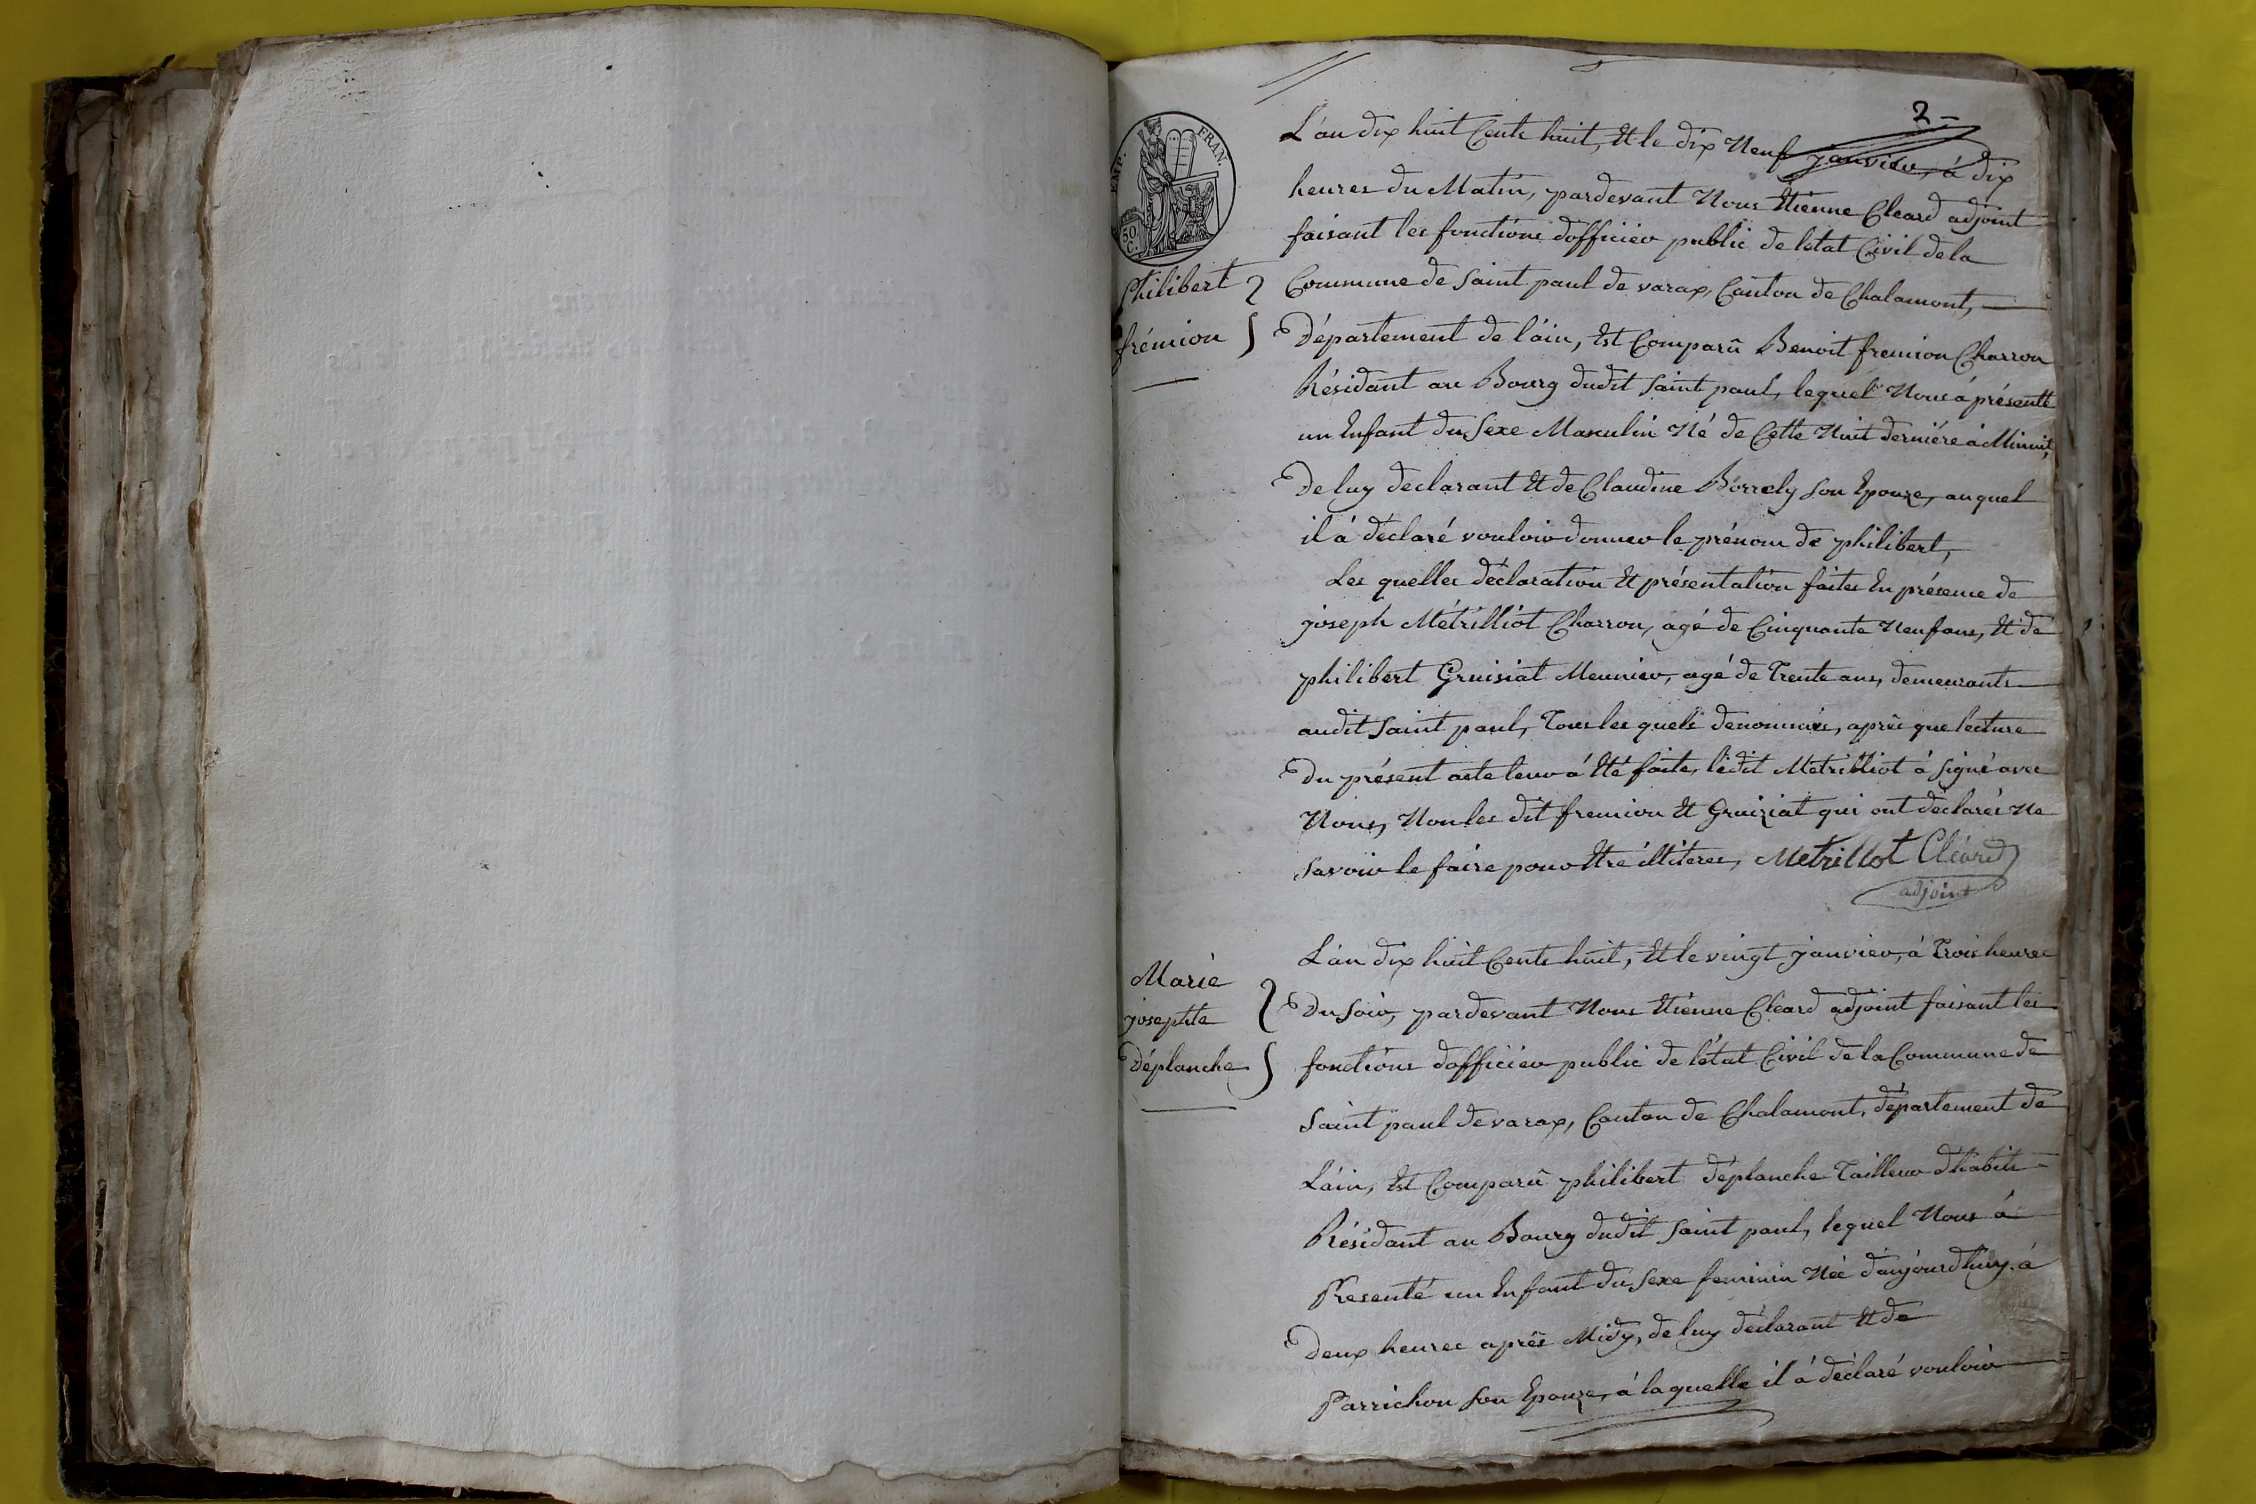 2
EMP. FRAN.
50 C.
L'an dix huit Cents huit, Et le dix Neuf janvier, à dix
heures du Matin, pardevant Nous Etienne Cléard adjoint
faisant les fonctions d'officier public de létat Civil de la
Philibert
Commune de Saint paul de varax, Canton de Chalamont,
frémion
Département de l'ain, Est Comparû Benoit fremion Charron
Résidant au Bourg dudit Saint paul, lequel Nous à présenté
un Enfant du Sexe Masculin Né de Cette Nuit derniére à Minuit,
De luy déclarant Et de Claudine Borrely Son Epouze, auquel
il à déclaré vouloir donner le prénom de philibert,
Les quelles déclaration Et présentation faites En présence de
joseph Métrilliot Charron, agé de Cinquante Neuf ans, Et de
philibert Gruisiat Meunier, agé de Trente ans, demeurants
audit Saint paul, Tous les quels denommés, après que lecture
Du présent acte leur à Eté faite, lédit Metrilliot à Signé avec
Nous, Non les dit fremion Et Gruiziat qui ont déclarés Ne
Savoir le faire pour Etre illiteres, Metrillot Cléard
adjoint
L'an dix huit Cents huit, Et le vingt janvier, à Trois heures
Marie
josephte
Du Soir, pardevant Nous Etienne Cléard adjoint faisant les
Déplanche
fonctions d'officier public de l'état Civil de la Commune de
Saint paul de varax, Canton de Chalamont, département de
L'ain, Est Comparû philibert déplanche Tailleur d'habits
Résidant au Bourg dudit Saint paul, lequel Nous à
Présenté un Enfant du Sexe feminin Née d'aujourdhuy à
Deux heures après Midy, de luy déclarant Et de
Parrichon Son Epouze, à laquelle il à déclaré vouloir